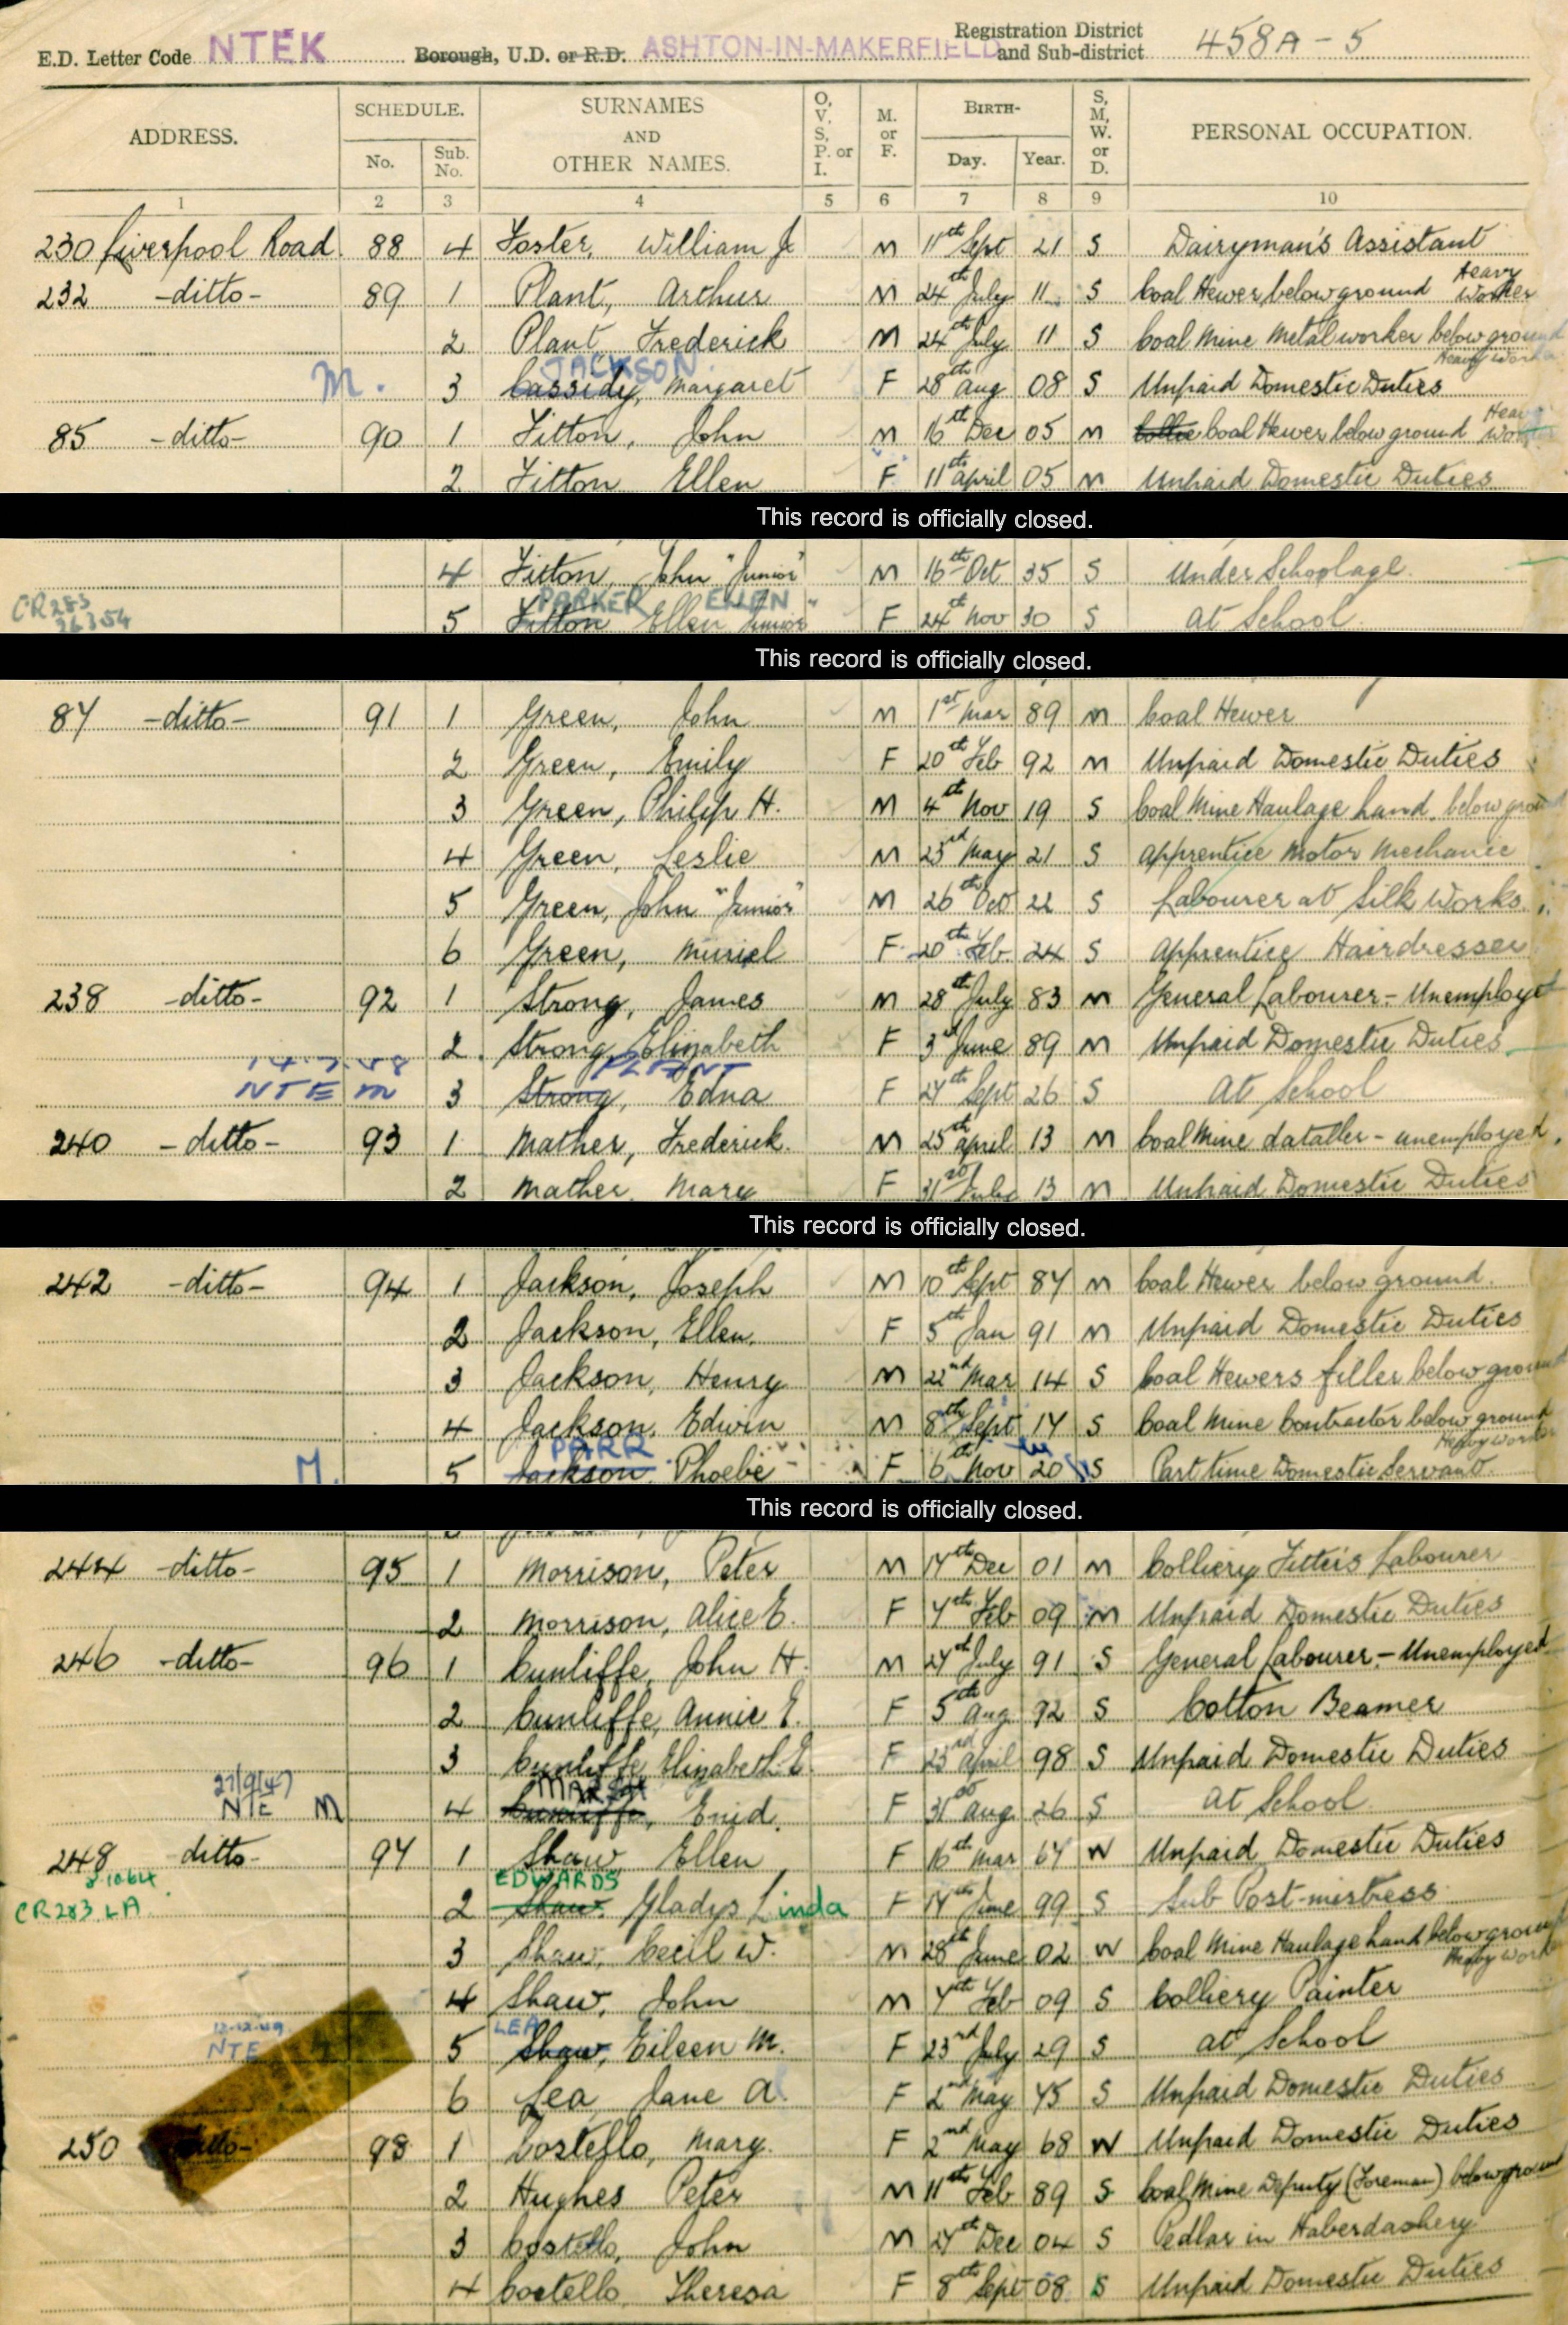 E.D. Letter Code NTEK Borough, U.D. or R.D. ASHTON-IN-MAKERFIELD Registration District and Sub-district 458A-5
ADDRESS. SCHEDULE. No. Sub. No. SURNAMES AND OTHER NAMES. O, V, S, P. or I. M. or F. BIRTH- Day. Year. S, M, W. or D. PERSONAL OCCUPATION.
1 2 3 4 5 6 7 8 9 10
230 Liverpool Road 88 4 Foster, William J. M 11th Sept 21 S Dairyman's Assistant
232 -ditto- 89 1 Plant, Arthur M 24th July 11 S Coal Hewer below ground Heavy Worker
2 Plant Frederick M 24th July 11 S Coal Mine Metal worker below ground Heavy Worker
JACKSON
M. 3 Cassidy, Margaret F 28th Aug 08 S Unpaid Domestic Duties
85 -ditto- 90 1 Fitton, John M 16th Dec 05 M Coal Hewer below ground Heavy Worker
2 Fitton Ellen F 11th April 05 M Unpaid Domestic Duties
This record is officially closed.
4 Fitton, John "Junior" M 16th Oct 35 S Under School age.
PARKER ELLEN
CR283 26354 5 Fitton Ellen Junior" F 24th Nov 30 S At School.
This record is officially closed.
87 -ditto- 91 1 Green, John M 1st Mar 89 M Coal Hewer
2 Green, Emily F 20th Feb 92 M Unpaid Domestic Duties
3 Green, Philip H. M 4th Nov 19 S Coal Mine Haulage hand, below ground
4 Green, Leslie M 23rd May 21 S Apprentice Motor Mechanic
5 Green, John "Junior" M 26th Oct 22 S Labourer at Silk Works.
6 Green, Muriel F 20th Feb 24 S Apprentice Hairdresser
238 -ditto- 92 1 Strong, James M 28th July 83 M General Labourer - Unemployed
2 Strong, Elizabeth F 3rd June 89 M Unpaid Domestic Duties
14.7.48 PLANT
NTE M 3 Strong, Edna F 27th Sept 26 S At School
240 -ditto- 93 1 Mather, Frederick. M 25th April 13 M Coal Mine dataller - unemployed.
2 Mather, Mary F 31st July 13 M Unpaid Domestic Duties
This record is officially closed.
242 -ditto- 94 1 Jackson, Joseph M 10th Sept 87 M Coal Hewer below ground.
2 Jackson, Ellen. F 5th Jan 91 M Unpaid Domestic Duties
3 Jackson, Henry M 22nd Mar 14 S Coal Hewers filler below ground
4 Jackson, Edwin M 8th Sept 17 S Coal Mine Contractor below ground Heavy worker
PARR
M. 5 Jackson Phoebe F 6th Nov 20 S Part time Domestic Servant.
This record is officially closed.
244 -ditto- 95 1 Morrison, Peter M 17th Dec 01 M Colliery Fitter's Labourer
2 Morrison, Alice E. F 7th Feb 09 M Unpaid Domestic Duties
246 -ditto- 96 1 Cunliffe, John H. M 27th July 91 S General Labourer - Unemployed
2 Cunliffe, Annie E. F 5th Aug 92 S Cotton Beamer
3 Cunliffe, Elizabeth E. F 23rd April 98 S Unpaid Domestic Duties
27/9/47 MARSH
NTE M 4 Cunliffe, Enid. F 31st Aug 26 S At School
248 ditto- 97 1 Shaw Ellen F 16th Mar 67 W Unpaid Domestic Duties
EDWARDS
CR283 LA 2 Shaw, Gladys Linda F 17th June 99 S Sub Post-mistress
3 Shaw, Cecil W. M 28th June 02 W Coal Mine Haulage hand below ground Heavy work
4 Shaw, John M 7th Feb 09 S Colliery Painter
12-12-49 LEA
NTE 5 Shaw, Eileen M. F 23rd July 29 S At School
6 Lea Jane A. F 2nd May 75 S Unpaid Domestic Duties
250 ditto- 98 1 Costello, Mary. F 2nd May 68 W Unpaid Domestic Duties
2 Hughes Peter M 11th Feb 89 S Coal Mine Deputy (Foreman) below ground
3 Costello, John M 27th Dec 04 S Pedlar in Haberdashery
4 Costello, Theresa F 8th Sept 08 S Unpaid Domestic Duties